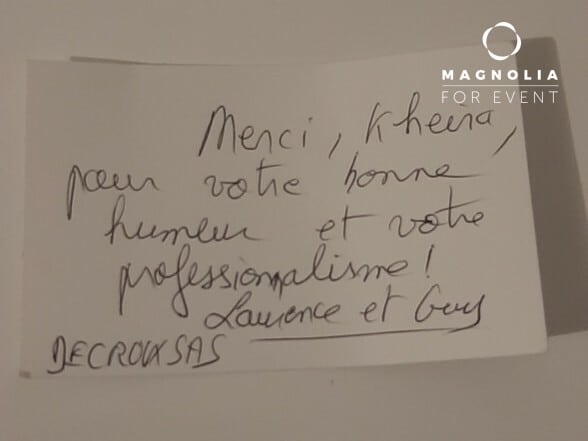 MAGNOLIA
FOR EVENT
Merci, Kheira,
pour votre bonne
humeur et votre
professionnalisme!
Laurence et Guy
DECROUX SAS